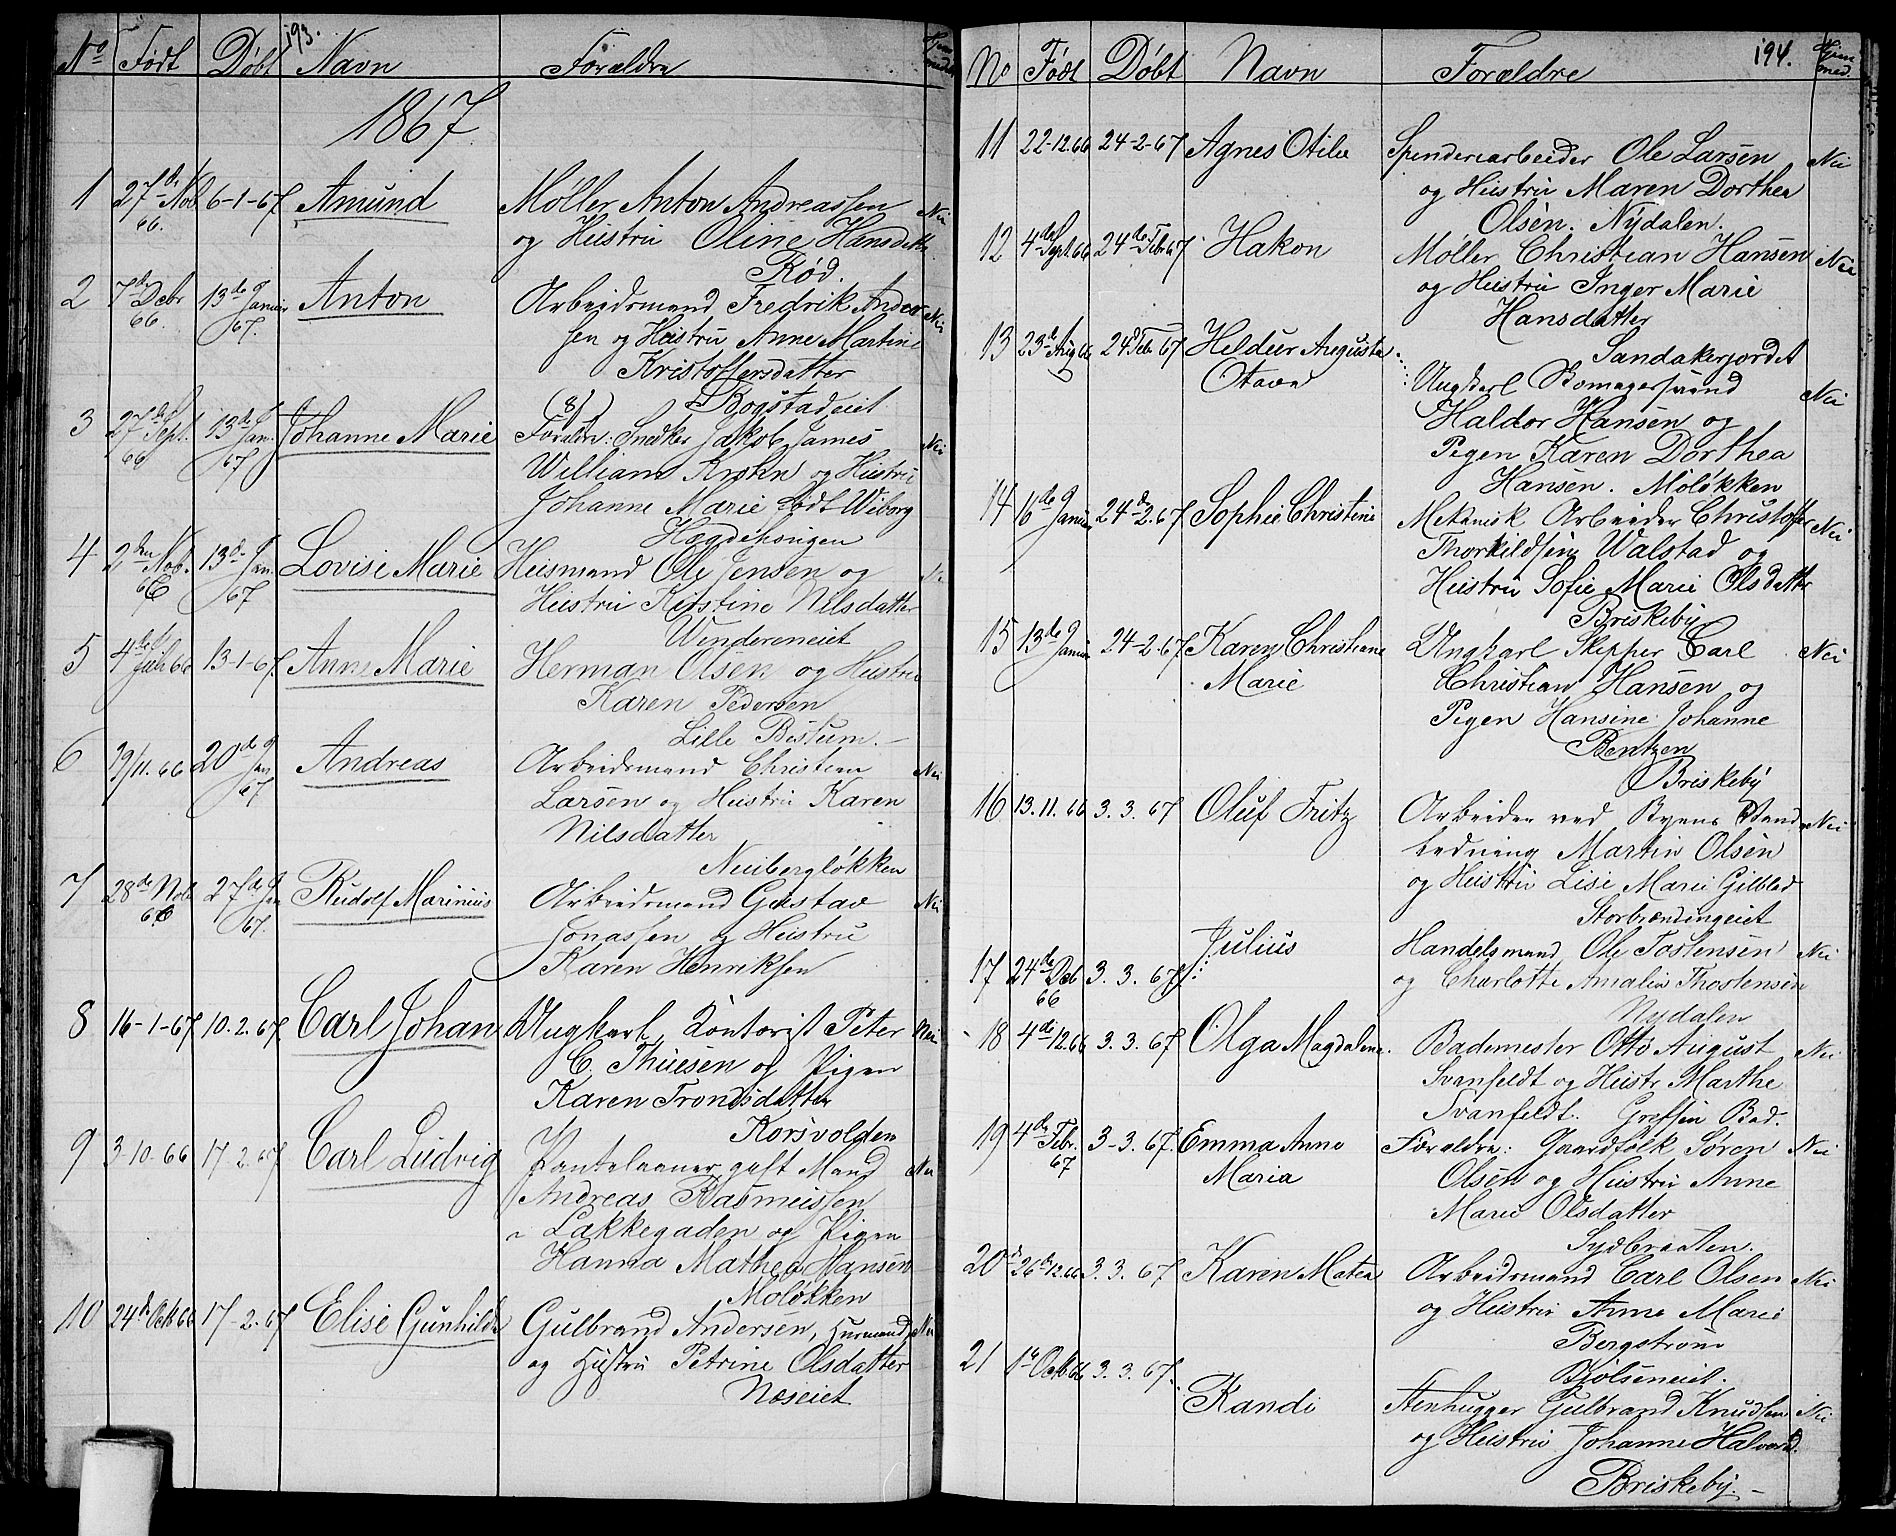 193.
No Født Døbt Navn Forældre
1867.
1 27de Nob 66. 6-1-67. Amund Møller Anton Andreassen Nei
og Hustru Oline Hansdatt.
Rød.
2 7de Debr 66. 13de Januar 67. Anton Arbeidsmand Fredrik Ander Nei
sen og Hustru Anne Martine
Kristoffersdatter
Bogstadeiet
3 27de Sept. 66 13de Jan. 67 Johanne Marie Forældr: Snedker Jakob James Nei
William Krohn og Hustru
Johanne Marie født Wiborg
Hægdehougen
4 2den Nob. 66 13de Jan. 67 Lovise Marie Huusmand Ole Jensen og
Hustru Kirstine Nilsdatter
Vindereneiet
5 4de Juli 66 13-1-67. Anne Marie Herman Olsen og Hustru
Karen Pedersen
Lille Bislum.
6 29/11. 66 20de Jan 67 Andreas Arbeidsmand Christian Nei
Larsen og Hustru Karen
Nilsdatter
Nuibergløkken
7 28de Nob 66 27de Jan 67. Rudolf Marinius Arbeidsmand Gustav Nei
Jonassen og Hustru
Karen Henriksen
8 16-1-67 10.2.67. Carl Johan Ungkarl, Kontorist Peter Nei
C. Thuesen og Pigen
Karen Trondsdatter
Korsvolden
9 3-10-66 17-2-67 Carl Ludvig Pantelaaner gift Mand Nei
Andreas Rasmussen
Lakkegaden og Pigen
Hanna Mathea Hansen
Moløkken
10 24de Octb 66 17-2-67 Elise Gunhilde Gulbrand Andersen, Husmand, Nei
og Hustru Petrine Olsdatter
Næseiet
194.
No Født Døbt Navn Forældre
11 22-12.66 24-2-67 Agnes Otilie Spinderiarbeider Ole Larsen Nei
og Hustru Maren Dorthea
Olsen. Nydalen.
12 4de Sept. 66 24de Febr 67 Hakon Møller Christian Hansen Nei
og Hustru Inger Marie
Hansdatter
Sandakerjordet
13 23de Aug 66 24de Feb 67 Heldur Augusta Ungkarl Skomagersvend Nei
Otava Haldor Hansen og
Pigen Karen Dorthea
Hansen. Moløkken
14 16de Januar 24de 2. 67 Sophie Christine Mekanisk Arbeider Christoffer Nei
Thorkildsen Walstad og
Hustru Sofie Marie Olsdatter
Briskeby
15 13de Januar 24-2-67. Karen Christiane Ungkarl Skipper Carl Nei
Marie Christian Hansen og
Pigen Hansine Johanne
Bentzen
Briskeby
16 13.11.66 3.3.67 Oluf Fritz Arbeider ved Byens Vand Nei
ledning Martin Olsen
og Hustru Lise Marie Gilblad
Storbrændingeiet
17 24de Deb 66 3.3.67 Julius Handelsmand Ole Tostensen Nei
og Charlotte Amalie Thostensen
Nydalen
18 4de 12.66 3.3.67 Olga Magdalena. Bademester Otto August Nei
Svanfeldt og Hustr Marthe
Svanfeldt. Grefsen Bad.
19 4de Febr. 67 3-3.67. Emma Anna Forældre: Gaardfolk Søren Nei
Maria Olsen og Hustru Anne
Marie Olsdatter
Sydbraaten.
20 26de 12.66 3.3.67 Karen Matea Arbeidsmand Carl Olsen Nei
og Hustru Anne Marie
Bergstrøm
Bjølseneiet.
21 1ste Octb 66 3.3.67. Randi Stenhugger Gulbrand Knudsen Nei
og Hustru Johanne Halvord.
Briskeby.